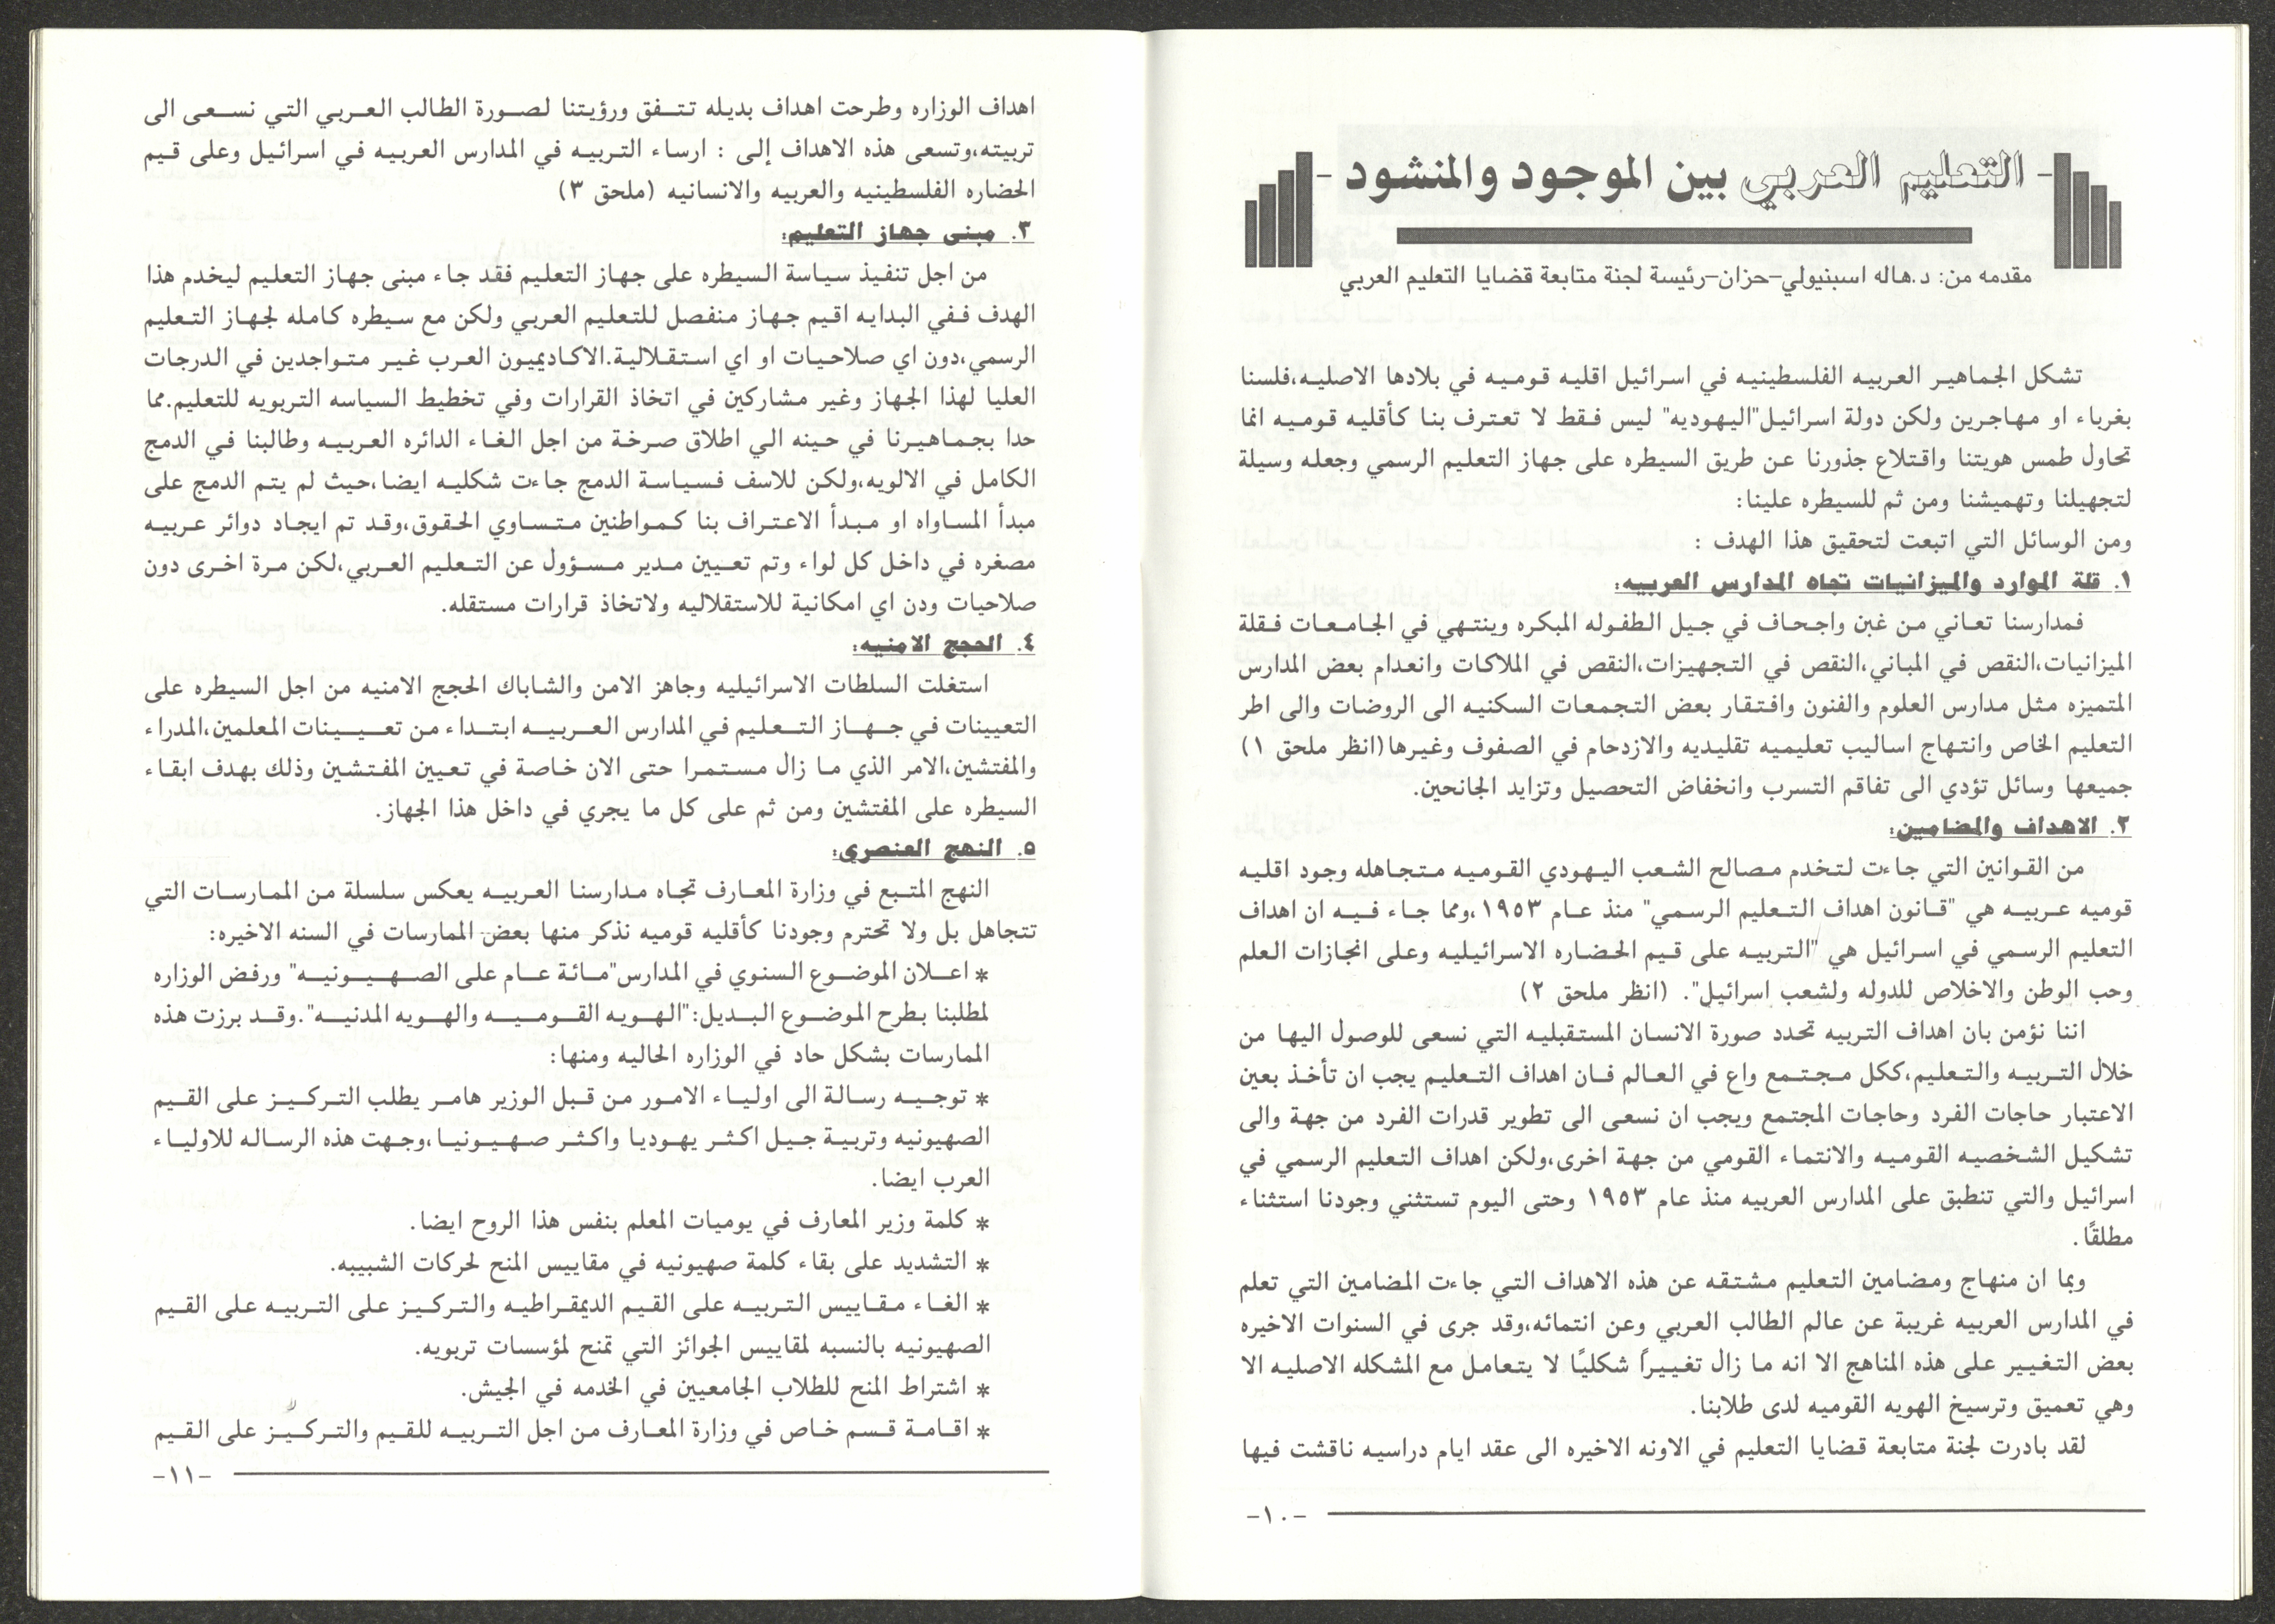 - التعليم العربي بين الموجود والمنشود -
مقدمه من: د.هاله اسبنيولي-حزان-رئيسة لجنة متابعة قضايا التعليم العربي
تشكل الجماهير العربيه الفلسطينيه في اسرائيل اقليه قوميه في بلادها الاصليه،فلسنا
بغرباء او مهاجرين ولكن دولة اسرائيل"اليهوديه" ليس فقط لا تعترف بنا كأقليه قوميه انما
تحاول طمس هويتنا واقتلاع جذورنا عن طريق السيطره على جهاز التعليم الرسمي وجعله وسيلة
لتجهيلنا وتهميشنا ومن ثم للسيطره علينا:
ومن الوسائل التي اتبعت لتحقيق هذا الهدف :
١. قلة الموارد والميزانيات تجاه المدارس العربيه:
فمدارسنا تعاني من غبن واجحاف في جيل الطفوله المبكره وينتهي في الجامعات فقلة
الميزانيات،النقص في المباني،النقص في التجهيزات،النقص في الملاكات وانعدام بعض المدارس
المتميزه مثل مدارس العلوم والفنون وافتقار بعض التجمعات السكنيه الى الروضات والى اطر
التعليم الخاص وانتهاج اساليب تعليميه تقليديه والازدحام في الصفوف وغيرها(انظر ملحق ١)
جميعها وسائل تؤدي الى تفاقم التسرب وانخفاض التحصيل وتزايد الجانحين.
٢. الاهداف والمضامين:
من القوانين التي جاءت لتخدم مصالح الشعب اليهودي القوميه متجاهله وجود اقليه
قوميه عربيه هي "قانون اهداف التعليم الرسمي" منذ عام ١٩٥٣،ومما جاء فيه ان اهداف
التعليم الرسمي في اسرائيل هي "التربيه على قيم الحضاره الاسرائيليه وعلى انجازات العلم
وحب الوطن والاخلاص للدوله ولشعب اسرائيل". (انظر ملحق ٢)
اننا نؤمن بان اهداف التربيه تحدد صورة الانسان المستقبليه التي نسعى للوصول اليها من
خلال التربيه والتعليم،ككل مجتمع واع في العالم فان اهداف التعليم يجب ان تأخذ بعين
الاعتبار حاجات الفرد وحاجات المجتمع ويجب ان نسعى الى تطوير قدرات الفرد من جهة والى
تشكيل الشخصيه القوميه والانتماء القومي من جهة اخرى،ولكن اهداف التعليم الرسمي في
اسرائيل والتي تنطبق على المدارس العربيه منذ عام ١٩٥٣ وحتى اليوم تستثني وجودنا استثناء
مطلقًا.
وبما ان منهاج ومضامين التعليم مشتقه عن هذه الاهداف التي جاءت المضامين التي تعلم
في المدارس العربيه غريبة عن عالم الطالب العربي وعن انتمائه،وقد جرى في السنوات الاخيره
بعض التغيير على هذه المناهج الا انه ما زال تغييراً شكليًا لا يتعامل مع المشكله الاصليه الا
وهي تعميق وترسيخ الهويه القوميه لدى طلابنا.
لقد بادرت لجنة متابعة قضايا التعليم في الاونه الاخيره الى عقد ايام دراسيه ناقشت فيها
-١٠-
اهداف الوزاره وطرحت اهداف بديله تتفق ورؤيتنا لصورة الطالب العربي التي نسعى الى
تربيته،وتسعى هذه الاهداف إلى : ارساء التربيه في المدارس العربيه في اسرائيل وعلى قيم
الحضاره الفلسطينيه والعربيه والانسانيه (ملحق ٣)
٣. مبنى جهاز التعليم:
من اجل تنفيذ سياسة السيطره على جهاز التعليم فقد جاء مبنى جهاز التعليم ليخدم هذا
الهدف ففي البدايه اقيم جهاز منفصل للتعليم العربي ولكن مع سيطره كامله لجهاز التعليم
الرسمي،دون اي صلاحيات او اي استقلالية.الاكاديميون العرب غير متواجدين في الدرجات
العليا لهذا الجهاز وغير مشاركين في اتخاذ القرارات وفي تخطيط السياسه التربويه للتعليم.مما
حدا بجماهيرنا في حينه الي اطلاق صرخة من اجل الغاء الدائره العربيه وطالبنا في الدمج
الكامل في الالويه،ولكن للاسف فسياسة الدمج جاءت شكليه ايضا،حيث لم يتم الدمج على
مبدأ المساواه او مبدأ الاعتراف بنا كمواطنين متساوي الحقوق،وقد تم ايجاد دوائر عربيه
مصغره في داخل كل لواء وتم تعيين مدير مسؤول عن التعليم العربي،لكن مرة اخرى دون
صلاحيات ودن اي امكانية للاستقلاليه ولاتخاذ قرارات مستقله.
٤. الحجج الامنيه:
استغلت السلطات الاسرائيليه وجاهز الامن والشاباك الحجج الامنيه من اجل السيطره على
التعيينات في جهاز التعليم في المدارس العربيه ابتداء من تعيينات المعلمين،المدراء
والمفتشين،الامر الذي ما زال مستمرا حتى الان خاصة في تعيين المفتشين وذلك بهدف ابقاء
السيطره على المفتشين ومن ثم على كل ما يجري في داخل هذا الجهاز.
٥. النهج العنصري:
النهج المتبع في وزارة المعارف تجاه مدارسنا العربيه يعكس سلسلة من الممارسات التي
تتجاهل بل ولا تحترم وجودنا كأقليه قوميه نذكر منها بعض الممارسات في السنه الاخيره:
* اعلان الموضوع السنوي في المدارس"مائة عام على الصهيونيه" ورفض الوزاره
لمطلبنا بطرح الموضوع البديل:"الهويه القوميه والهويه المدنيه".وقد برزت هذه
الممارسات بشكل حاد في الوزاره الحاليه ومنها:
* توجيه رسالة الى اولياء الامور من قبل الوزير هامر يطلب التركيز على القيم
الصهيونيه وتربية جيل اكثر يهوديا واكثر صهيونيا،وجهت هذه الرساله للاولياء
العرب ايضا.
* كلمة وزير المعارف في يوميات المعلم بنفس هذا الروح ايضا.
* التشديد على بقاء كلمة صهيونيه في مقاييس المنح لحركات الشبيبه.
* الغاء مقاييس التربيه على القيم الديمقراطيه والتركيز على التربيه على القيم
الصهيونيه بالنسبه لمقاييس الجوائز التي تمنح لمؤسسات تربويه.
* اشتراط المنح للطلاب الجامعيين في الخدمه في الجيش.
* اقامة قسم خاص في وزارة المعارف من اجل التربيه للقيم والتركيز على القيم
-١١-